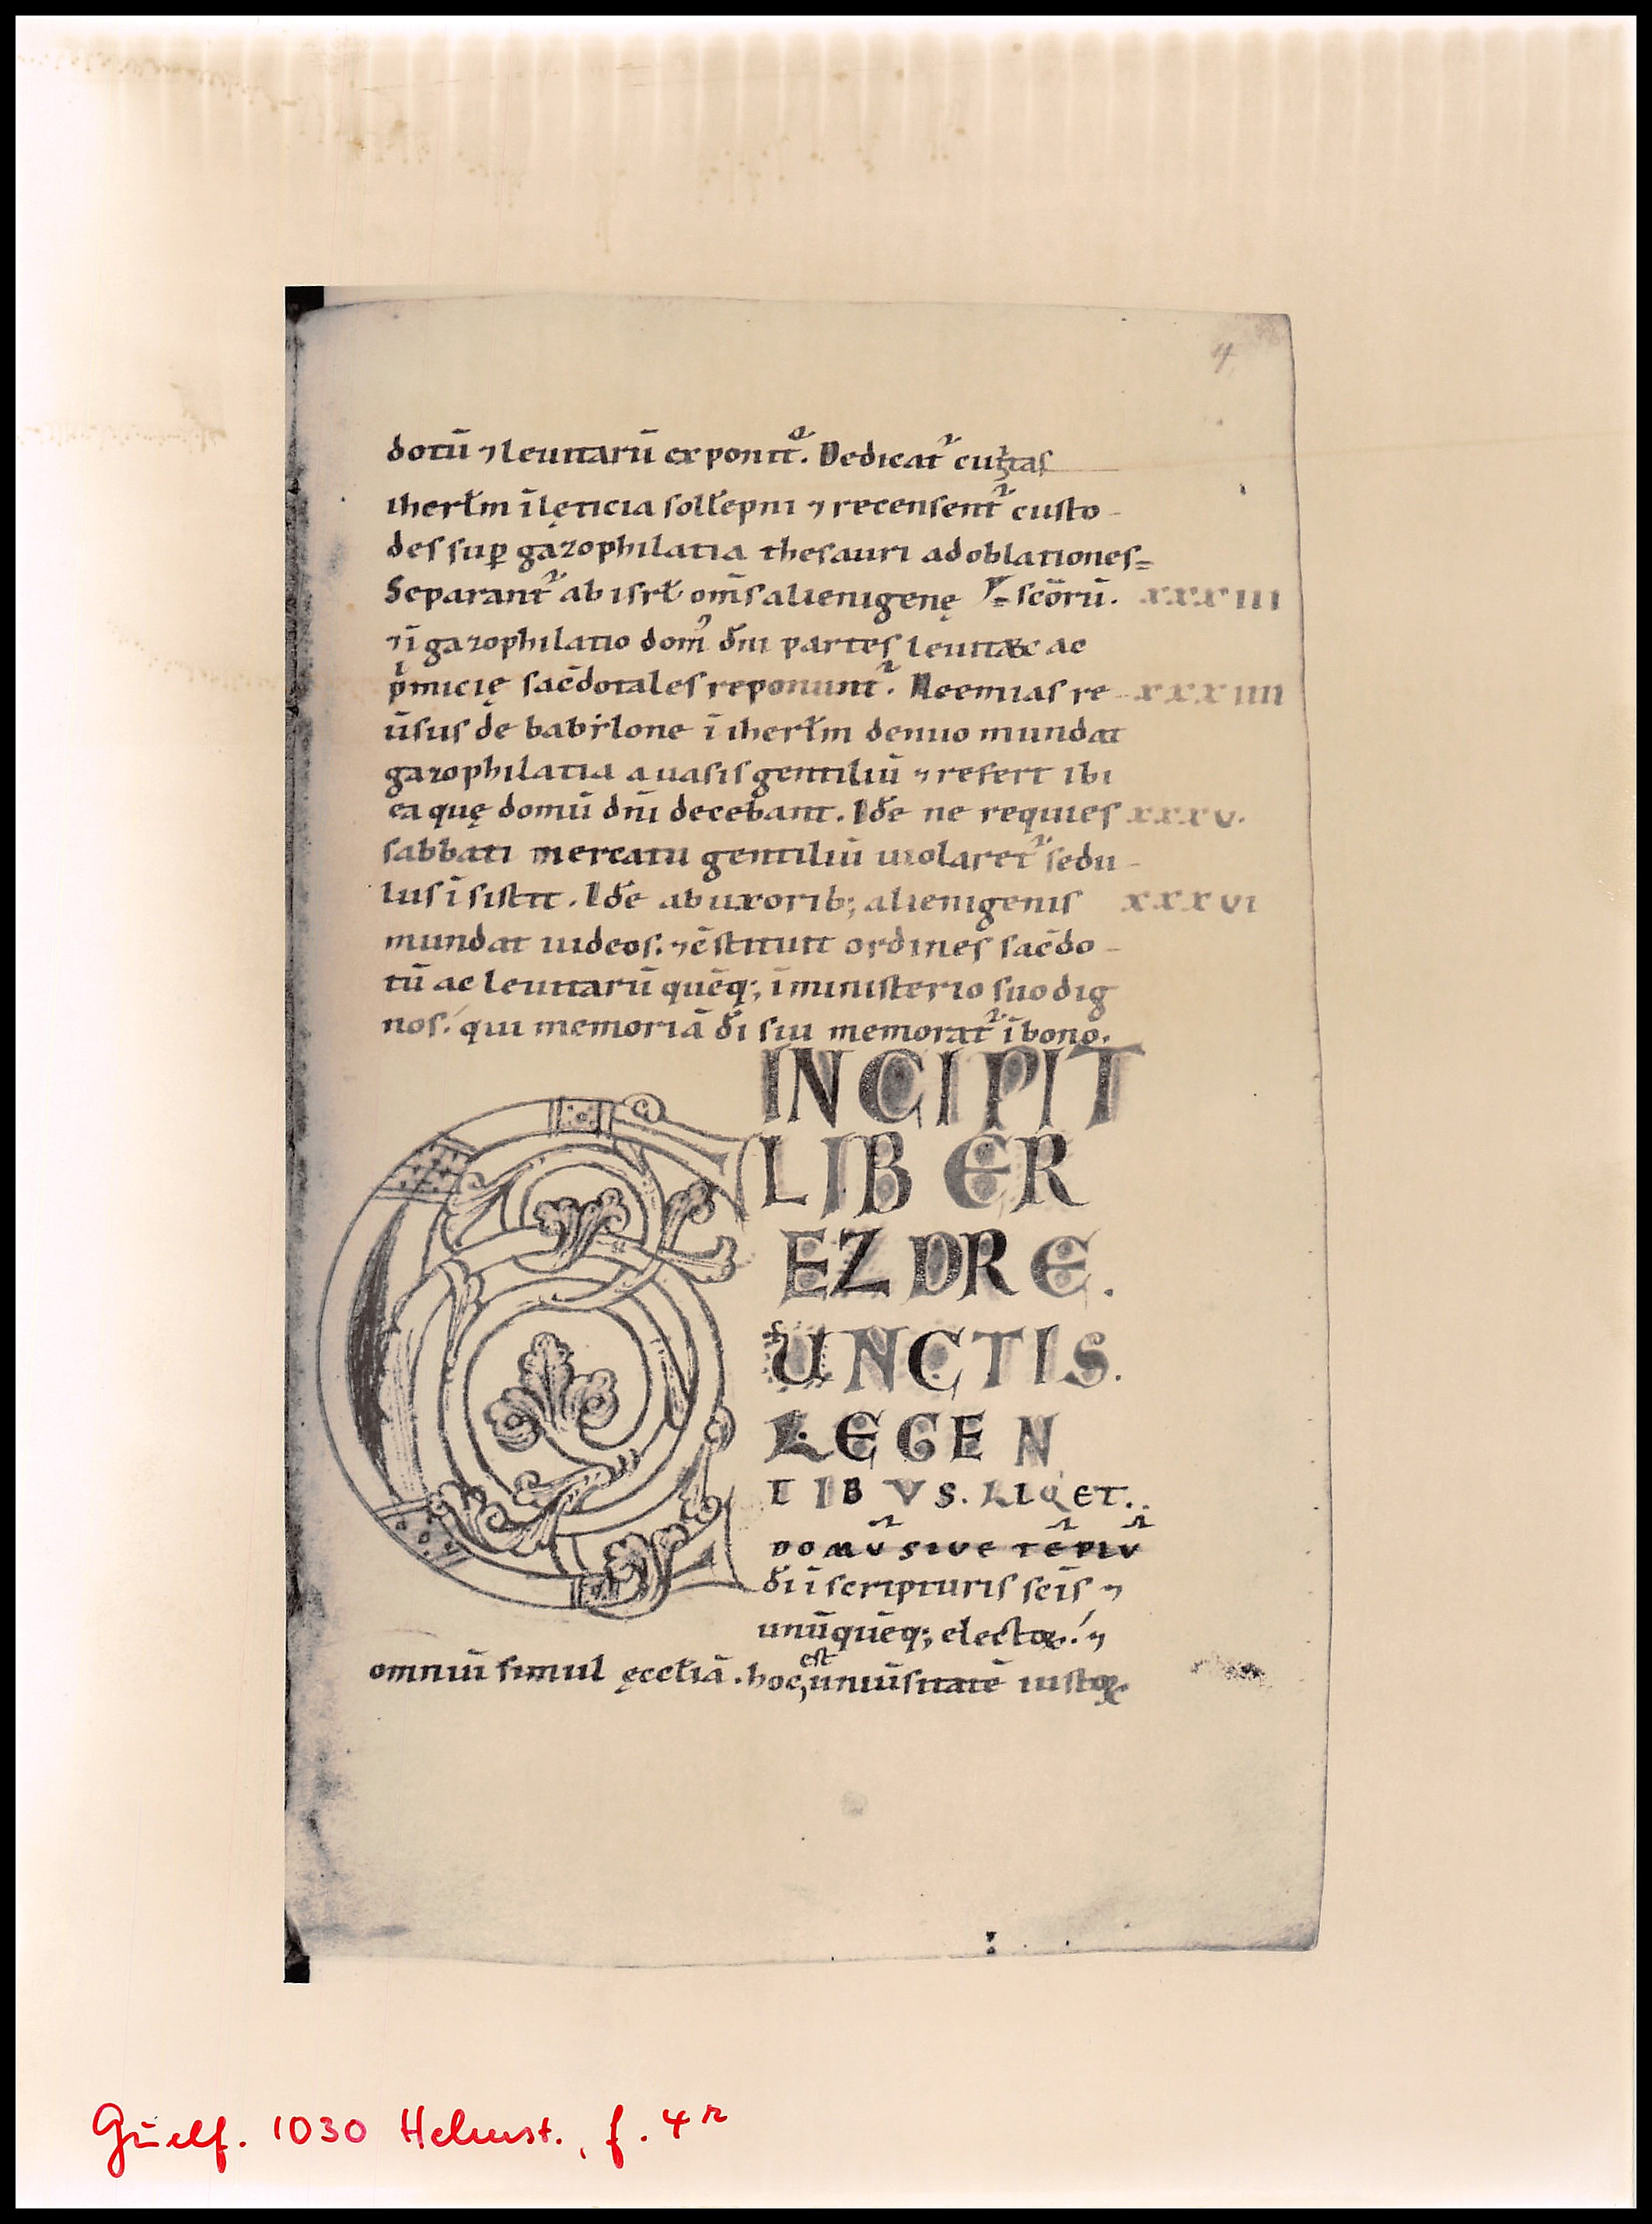 4
dotū ⁊ leuitarū exponitᷓ. Dedicat᷑ ciuitas
iherl̄m ī lęticia soll̄epni ⁊ recensent᷑ custo-
des suꝑ gazophilatia thesauri ad oblationes=
Separant᷑ ab isrl̄ om̄s alienigenę scōrū. xxxiii
⁊ ī gazophilatio dom᷒ dn̄i partes leuitaꝝ ac
pͥmicię sac̄dotales reponunt᷑. Neemias re- xxxiiii
ūsus de babẏlone ī iherl̄m denuo mundat
gazophilatia a uasis gentiliū ⁊ refert ibi
ea quę domū dn̄i decebant. Idē ne requies xxxv.
sabbati mercatu gentiliū uiolaret᷑ sedu-
lus īsistit. Idē ab uxorib; alienigenis xxxvi
mundat iudeos. ⁊ c̄stituit ordines sac̄do-
tū ac leuitarū quēq; ī ministerio suo dig
nos. qui memoriā dī sui memorat᷑ ī bono.
INCIPIT
LIBER
EZDRE.
CUNCTIS.
LEGEN
TIBVS. LIQET..
DOMV̄ SIVE TĒPLV̄
dī ī scripturis scīs ⁊
unūquēq; electoꝝ. ⁊
omniū simul ęccl̄iā. hoc est uniūsitatē iustoꝝ
Guelf. 1030 Helmst., f. 4r